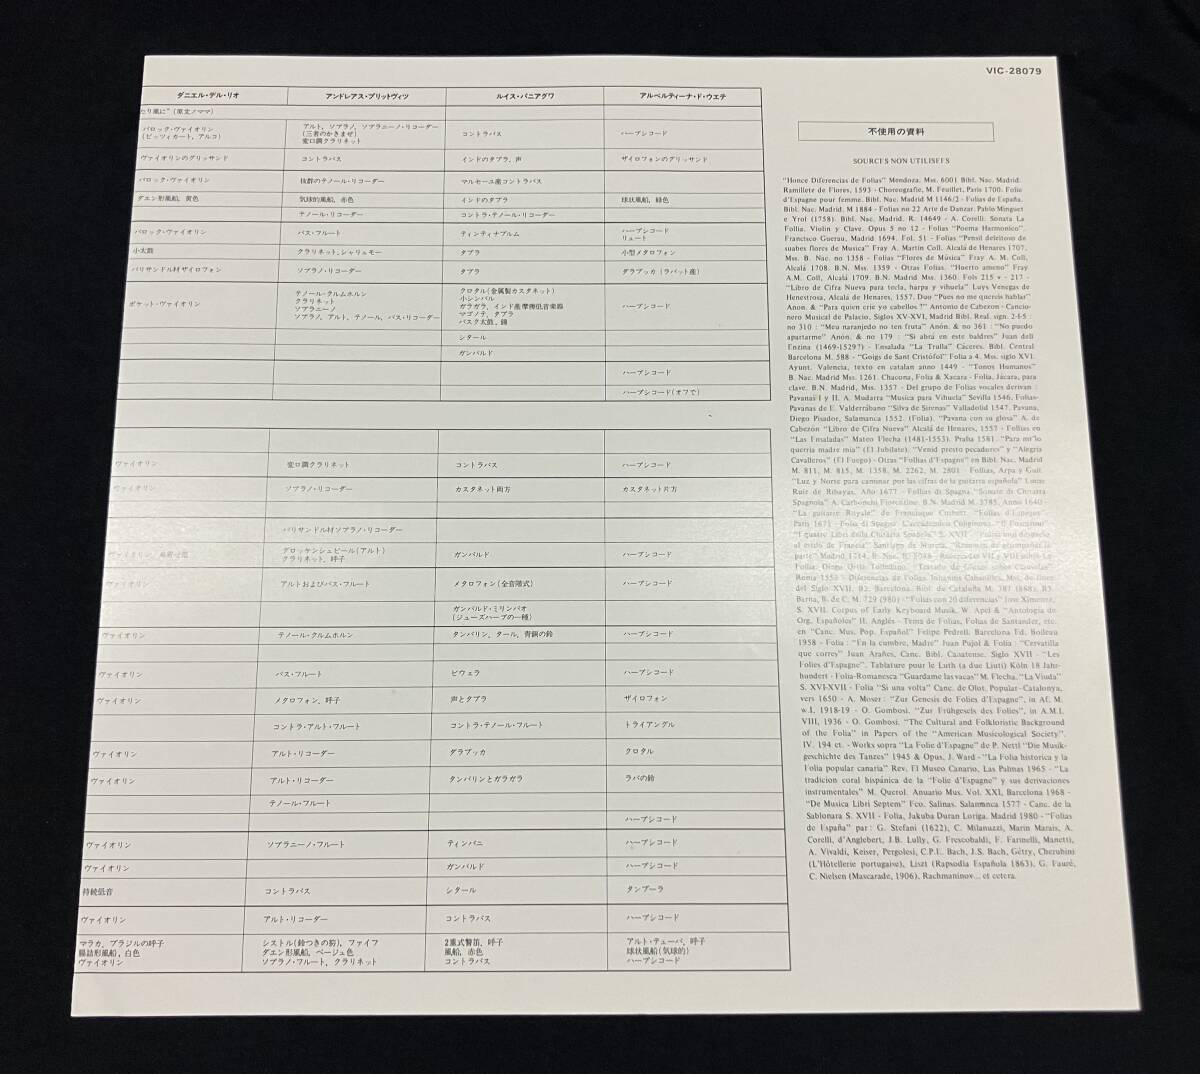 VIC-28079
ダニエル・デル・リオ アンドレアス・プリットヴィツ ルイス・パニアグワ アルベルティーナ・ド・ウエテ
たり風に"(原文ノママ)
バロック・ヴァイオリン アルト, ソプラノ, ソプラニーノ・リコーダー コントラバス ハープシコード
(ピッツィカート, アルコ) (三者のかきまぜ)
変ロ調クラリネット
ヴァイオリンのグリッサンド コントラバス インドのタブラ, 声 ザイロフォンのグリッサンド
バロック・ヴァイオリン 抜群のテノール・リコーダー マルセーユ産コントラバス
ダエン形風船, 黄色 気球的風船, 赤色 インドのタブラ 球状風船, 緑色
テノール・リコーダー コントラ・テノール・リコーダー
バロック・ヴァイオリン バス・フルート ティンティナブルム ハープシコード
リュート
小太鼓 クラリネット, シャリュモー タブラ 小型メタロフォン
パリサンドル材ザイロフォン ソプラノ・リコーダー タブラ ダラブッカ(ラバット産)
ポケット・ヴァイオリン テノール・クルムホルン クロタル(金属製カスタネット) ハープシコード
クラリネット 小シンバル
ソプラニーノ ガラガラ, インド産摩擦低音楽器
ソプラノ, アルト, テノール, バス・リコーダー マゴノテ, タブラ
バスク太鼓, 鍋
シタール
ガンバルド
ハープシコード
ハープシコード(オフで)
ヴァイオリン 変ロ調クラリネット コントラバス ハープシコード
ヴァイオリン ソプラノ・リコーダー カスタネット両方 カスタネット片方
パリサンドル材ソプラノ・リコーダー
グロッケンシュピール(アルト) ガンバルド ハープシコード
クラリネット, 呼子
ヴァイオリン アルトおよびバス・フルート メタロフォン(全音階式) ハープシコード
ガンバルド・ミリンバオ
(ジューズハープの一種)
ヴァイオリン テノール・クルムホルン タンバリン, タール, 青銅の鈴 ハープシコード
ヴァイオリン バス・フルート ビウェラ ハープシコード
ヴァイオリン メタロフォン, 呼子 声とタブラ ザイロフォン
コントラ・アルト・フルート コントラ・テノール・フルート トライアングル
ヴァイオリン アルト・リコーダー ダラブッカ クロタル
ヴァイオリン アルト・リコーダー タンバリンとガラガラ ラバの鈴
テノール・フルート
ハープシコード
ヴァイオリン ソプラニーノ・フルート ティンパニ ハープシコード
ヴァイオリン ガンバルド ハープシコード
持続低音 コントラバス シタール タンブーラ
ヴァイオリン アルト・リコーダー コントラバス ハープシコード
マラカ, ブラジルの呼子 シストル(鈴つきの箍), ファイフ 2重式警笛, 呼子 アルト・テューバ, 呼子
腸詰形風船, 白色 ダエン形風船, ベージュ色 風船, 赤色 球状風船(気球的)
ヴァイオリン ソプラノ・フルート, クラリネット コントラバス ハープシコード
不使用の資料
SOURCES NON UTILISEES
"Honce Diferencias de Folias" Mendoza. Mss. 6001 Bibl. Nac. Madrid.
Ramillete de Flores, 1593 - Choreografie, M. Feuillet, Paris 1700. Folie
d'Espagne pour femme. Bibl. Nac. Madrid M 1146/2 - Folias de España.
Bibl. Nac. Madrid M 1884 - Folias no 22 Arte de Danzar. Pablo Minguet
e Yrol (1758). Bibl. Nac. Madrid. R. 14649 - A. Corelli. Sonata La
Follia. Violin y Clave. Opus 5 no 12 - Folias "Poema Harmonico".
Francisco Guerau, Madrid 1694. Fol. 51 - Folias "Pensil deleitoso de
suabes flores de Musica" Fray A. Martin Coll. Alcalá de Henares 1707.
Mss. B. Nac. no 1358 - Folias "Flores de Música" Fray A. M. Coll,
Alcalá 1708. B.N. Mss. 1359 - Otras Folias. "Huerto ameno" Fray
A.M. Coll, Alcalá 1709. B.N. Madrid Mss. 1360. Fols 215 v - 217 -
"Libro de Cifra Nueva para tecla, harpa y vihuela" Luys Venegas de
Henestrosa, Alcalá de Henares, 1557. Duo "Pues no me quereis hablar"
Anon. & "Para quien crie yo cabellos?" Antonio de Cabezon - Cancio-
nero Musical de Palacio, Siglos XV-XVI, Madrid Bibl. Real. sign. 2-I-5 :
no 310 : "Meu naranjedo no ten fruta" Anón. & no 361 : "No puedo
apartarme" Anón. & no 179 : "Si abrá en este baldres" Juan dell
Enzina (1469-1529?) - Ensalada "La Trulla" Cáceres. Bibl. Central
Barcelona M. 588 - "Goigs de Sant Cristófol" Folia a 4. Mss. siglo XVI.
Ayunt. Valencia, texto en catalan anno 1449 - "Tonos Humanos"
B. Nac. Madrid Mss. 1261. Chacona, Folia & Xacara - Folia, Jácara, para
clave. B.N. Madrid, Mss. 1357 - Del grupo de Folias vocales derivan :
Pavanas I y II. A. Mudarra "Musica para Vihuela" Sevilla 1546. Folias-
Pavanas de E. Valderrábano "Silva de Sirenas" Valladolid 1547. Pavana,
Diego Pisador, Salamanca 1552. (Folia). "Pavana con su glosa" A. de
Cabezón "Libro de Cifra Nueva" Alcalá de Henares, 1557 - Follias en
"Las Ensaladas" Mateo Flecha (1481-1553). Praha 1581. "Para mi'lo
querria madre mia" (El Jubilate). "Venid presto pecadores" y "Alegria
Cavalleros" (El Fuego) - Otras "Follias d'Espagne" en Bibl. Nac. Madrid
M. 811, M. 815, M. 1358, M. 2262, M. 2801 - Follias, Arpa y Guit.
"Luz y Norte para caminar por las cifras de la guitarra española" Lucas
Ruiz de Ribayas. Año 1677 - Follias di Spagna.
del Siglo XVII.
S. XVII. Corpus of Early Keyboard Musik. W. Apel & "Antologia de
Org. Españoles" H. Anglés - Tema de Folias, Folias de Santander, etc.
en "Canc. Mus. Pop. Español" Felipe Pedrell. Barcelona Ed. Boileau
1958 - Folia : "En la cumbre, Madre" Juan Pujol & Folia : "Cervatilla
que corres" Juan Arañes, Canc. Bibl. Casatense. Siglo XVII - "Les
Folies d'Espagne". Tablature pour le Luth (a due Liuti) Köln 18 Jahr-
hundert - Folia-Romanesca "Guardame las vacas" M. Flecha. "La Viuda"
S. XVI-XVII - Folia "Si una volta" Canc. de Olot. Popular-Catalonya,
vers 1650 - A. Moser : "Zur Genesis de Folies d'Espagne", in Af. M.
w.I, 1918-19 - O. Gombosi. "Zur Frühgesels des Folies", in A.M.I.
VIII, 1936 - O. Gombosi. "The Cultural and Folkloristic Background
of the Folia" in Papers of the "American Musicological Society".
IV. 194 ct. - Works sopra "La Folie d'Espagne" de P. Nettl "Die Musik-
geschichte des Tanzes" 1945 & Opus, J. Ward - "La Folia historica y la
Folia popular canaria" Rev. El Museo Canario, Las Palmas 1965 - "La
tradicion coral hispánica de la "Folie d'Espagne" y sus derivaciones
instrumentales" M. Querol. Anuario Mus. Vol. XXI, Barcelona 1968 -
"De Musica Libri Septem" Fco. Salinas. Salamanca 1577 - Canc. de la
Sablonara S. XVII - Folia, Jakuba Duran Loriga. Madrid 1980 - "Folias
de España" par : G. Stefani (1622), C. Milanuzzi, Marin Marais, A.
Corelli, d'Anglebert, J.B. Lully, G. Frescobaldi, F. Farinelli, Manetti,
A. Vivaldi, Keiser, Pergolesi, C.P.E. Bach, J.S. Bach, Gétry, Cherubini
(L'Hôtellerie portugaise), Liszt (Rapsodia Española 1863), G. Fauré,
C. Nielsen (Mascarade, 1906), Rachmaninov... et cetera.